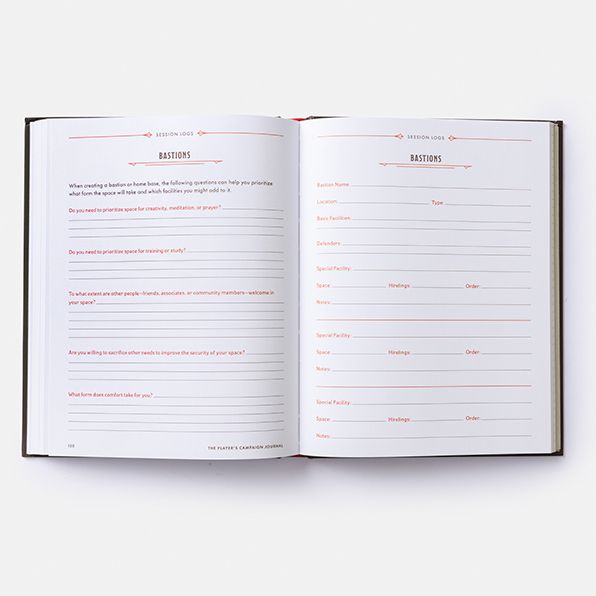 SESSION LOGS
BASTIONS
When creating a bastion or home base, the following questions can help you prioritize
what form the space will take and which facilities you might add to it.
Do you need to prioritize space for creativity, meditation, or prayer?
Do you need to prioritize space for training or study?
To what extent are other people—friends, associates, or community members—welcome in
your space?
Are you willing to sacrifice other needs to improve the security of your space?
What form does comfort take for you?
THE PLAYER'S CAMPAIGN JOURNAL
SESSION LOGS
BASTIONS
Bastion Name:
Location: Type:
Basic Facilities:
Defenders:
Special Facility:
Space: Hirelings: Order:
Notes:
Special Facility:
Space: Hirelings: Order:
Notes:
Special Facility:
Space: Hirelings: Order:
Notes: